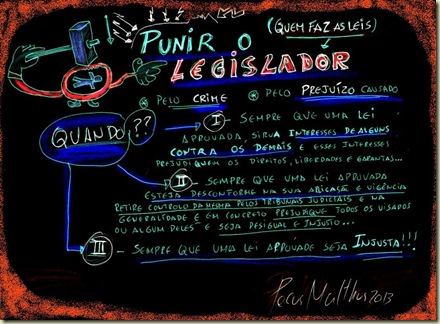 PUNIR O
(QUEM FAZ AS LEIS)
LEGISLADOR
* PELO CRIME * PELO PREJUÍZO CAUSADO
QUANDO??
I - SEMPRE QUE UMA LEI
APROVADA, SIRVA INTERESSES DE ALGUNS
CONTRA OS DEMAIS E ESSES INTERESSES
PREJUDIQUEM OS DIREITOS, LIBERDADES E GARANTIAS...
II - SEMPRE QUE UMA LEI APROVADA
ESTEJA DESCONFORME NA SUA APLICAÇÃO E VIGÊNCIA
RETIRE CONTROLO DA MESMA PELOS TRIBUNAIS JUDICIAIS E NA
GENERALIDADE E EM CONCRETO PREJUDIQUE TODOS OS VISADOS
OU ALGUM DELES E SEJA DESIGUAL E INJUSTO...
III - SEMPRE QUE UMA LEI APROVADA SEJA INJUSTA!!!
2013